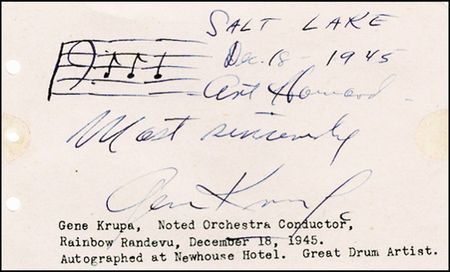 SALT LAKE
Dec. 18 - 1945
Art Howard -
Most sincerely
Gene Krupa
Gene Krupa, Noted Orchestra Conductor,
Rainbow Randevu, December 18, 1945.
Autographed at Newhouse Hotel. Great Drum Artist.